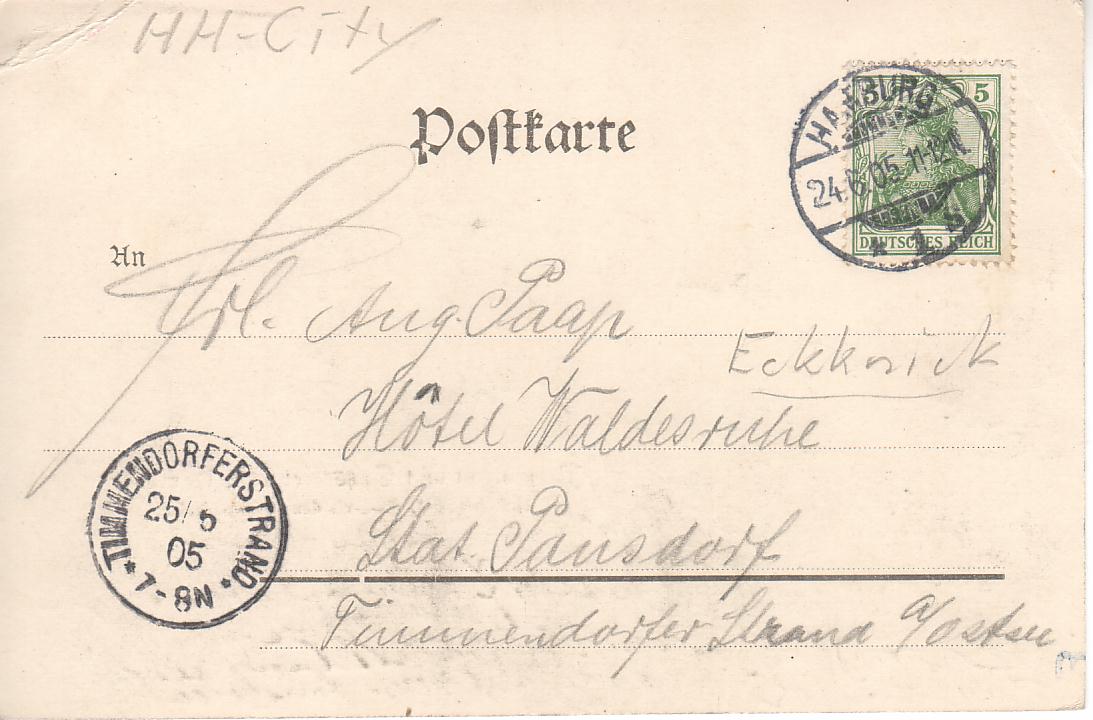 HH-City
Postkarte
5
DEUTSCHES REICH
HAMBURG
24.6.05 11-12N.
* 1 s
An
Frl. Aug. Paap
Eckknick
Hôtel Waldesruhe
Stat. Pansdorf
Timmendorfer Strand a/Ostsee
* TIMMENDORFERSTRAND *
25/6
05
7-8N